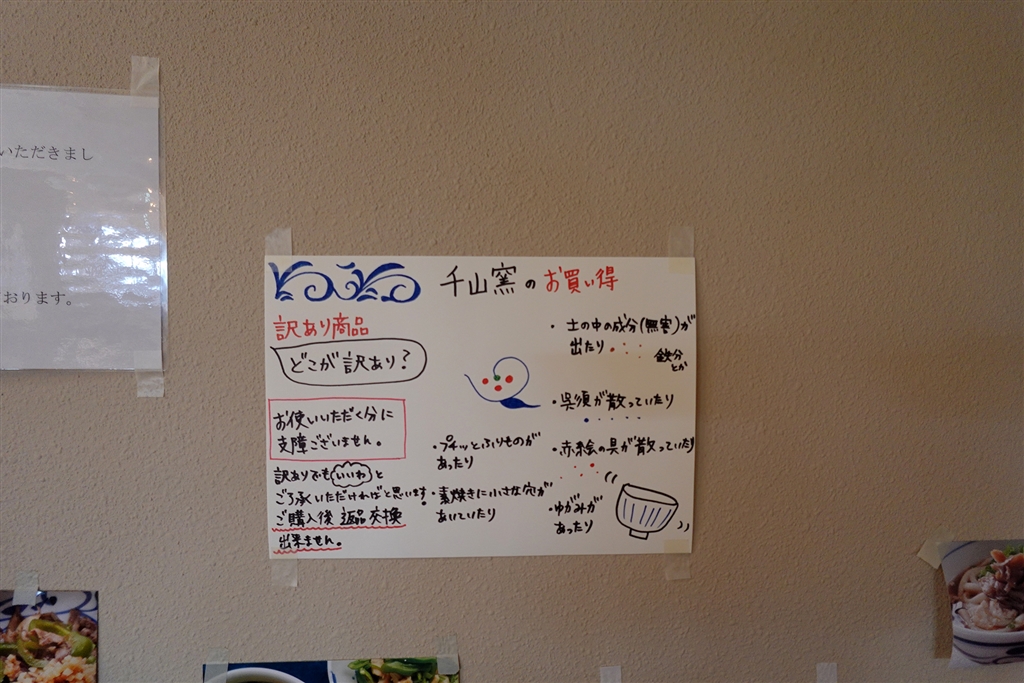 いただきまし
おります。
千山窯のお買い得
訳あり商品
どこが訳あり?
お使いいただく分に
支障ございません。
訳ありでもいいわと
ご了承いただければと思います!
ご購入後 返品 交換
出来ません。
・プチッとふりものが
あったり
・素焼きに小さな穴が
あいていたり
・土の中の成分(無害)が
出たり
鉄分
とか
・呉須が散っていたり
・赤絵の具が散っていたり
・ゆがみが
あったり